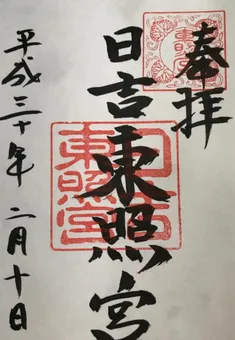 奉拝
日吉東照宮
日吉
東照宮
平成三十年二月十日